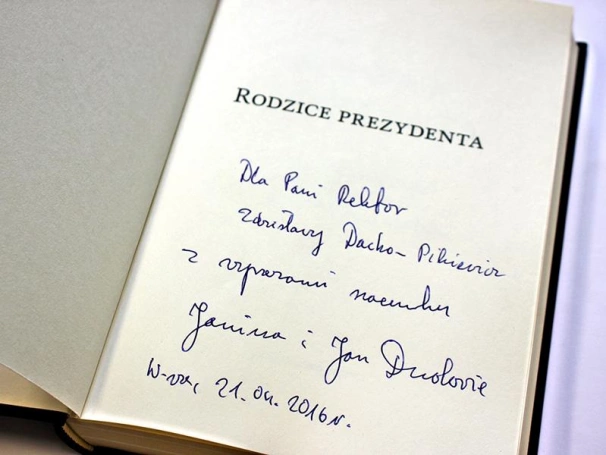 RODZICE PREZYDENTA
Dla Pani Rektor
Zdzisławy Dacko-Pikiewicz
z wyrazami szacunku
Janina i Jan Dudowie
W-wa, 21.04.2016 r.